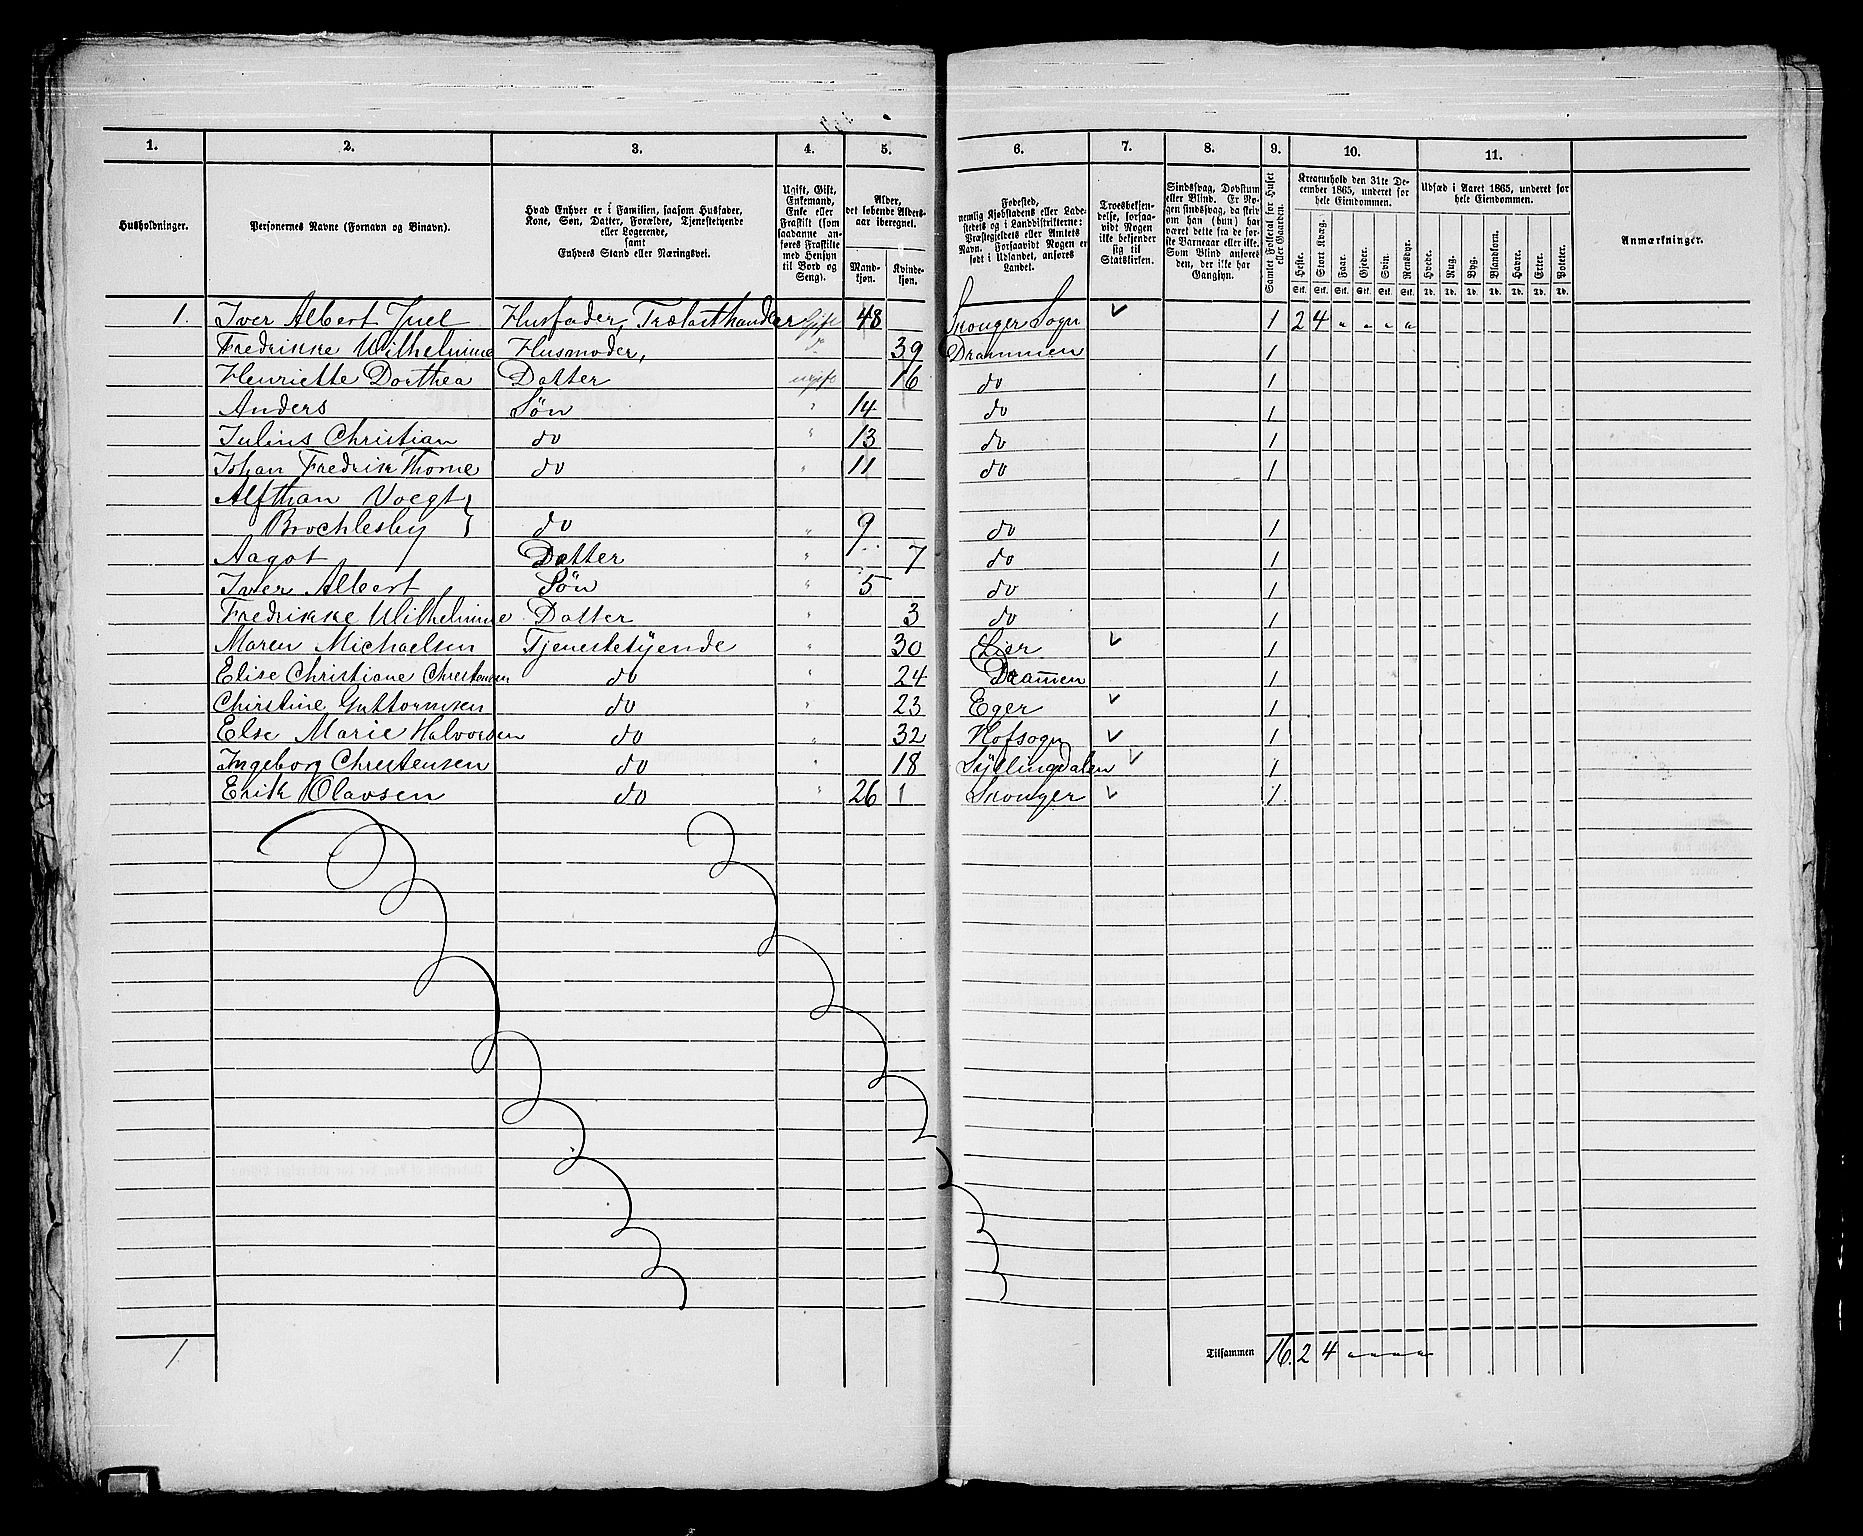 1. 2. 3. 4. 5. 6. 7. 8. 9. 10. 11.
Husholdninger.
Personernes Navne (Fornavn og Binavn).
Hvad Enhver er i Familien, saasom Husfader,
Kone, Søn, Datter, Forældre, Tjenstetyende
eller Logerende,
samt
Enhvers Stand eller Næringsvei.
Ugift, Gift,
Enkemand,
Enke eller
Fraskilt (som
saadanne an-
føres Fraskilte
med Hensyn
til Bord og
Seng).
Alder,
det løbende Alders-
aar iberegnet.
Mand-
kjøn.
Kvinde-
kjøn.
Fødested,
nemlig Kjøbstadens eller Lade-
stedets og i Landdistrikterne:
Præstegjeldets eller Amtets
Navn. Forsaavidt Nogen er
født i Udlandet, anføres
Landet.
Troesbekjen-
delse, forsaa-
vidt Nogen
ikke bekjender
sig til
Statskirken.
Sindssvag, Døvstum
eller Blind. Er No-
gen sindssvag, da skriv
om han (hun) har
været dette fra de før-
ste Barneaar eller ikke.
Som Blind anføres
den, der ikke har
Gangsyn.
Samlet Folketal for Huset
eller Gaarden.
Kreaturhold den 31te De-
cember 1865, underet for
hele Eiendommen.
Heste. Stort Kvæg. Faar. Gjeder. Svin. Rensdyr.
Stk. Stk. Stk. Stk. Stk. Stk.
Udsæd i Aaret 1865, underet for
hele Eiendommen.
Hvede. Rug. Byg. Blandkorn. Havre. Erter. Poteter.
Td. Td. Td. Td. Td. Td. Td.
Anmærkninger.
1. Iver Albert Juel Husfader, Trælasthandler Gift 48 Skouger Sogn 1 2 4 " " " "
Fredrikke Wilhelmine Husmoder, do 39 Drammen 1
Henriette Dorthea Datter ugift 16 do 1
Anders Søn " 14 do 1
Julius Christian do " 13 do 1
Johan Fredrik Thorne do " 11 do 1
Alfthan Voegt
Brochlesby do " 9 do 1
Aagot Datter " 7 do 1
Iver Albert Søn " 5 do 1
Fredrikke Wilhelmine Datter " 3 do 1
Maren Michaelsen Tjenestetyende " 30 Lier 1
Elise Christiane Christensen do " 24 Drammen 1
Christine Guttormsen do " 23 Eger 1
Else Marie Halvorsen do " 32 Hofsogn 1
Ingeborg Christensen do " 18 Syllingdalen 1
Erik Olavsen do " 26 1 Skouger 1
1 Tilsammen 16. 2 4 " " " "